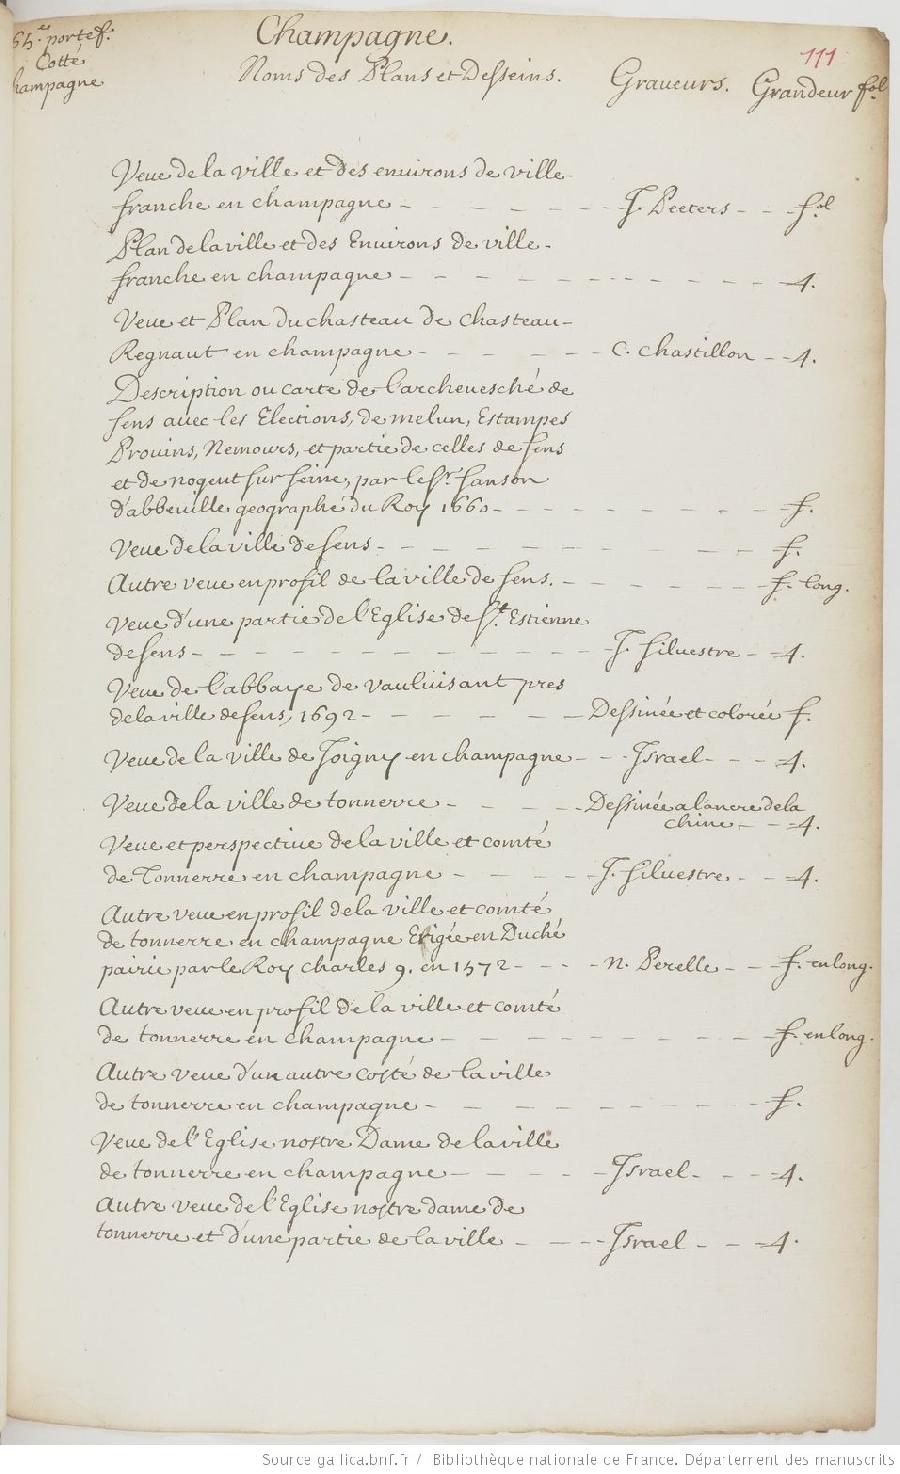 Champagne.
54.e portef.
Cotté
hampagne
Noms des Plans et Desseins. Graveurs. Grandeur fol
111
Veue de la ville et des environs de ville
franche en champagne - - - - - J. Peeters - - fol
Plan de la ville et des Environs de ville-
franche en champagne - - - - - - - - - 4.
Veue et Plan du chasteau de chasteau-
Regnaut en champagne - - - - - C. Chastillon - - 4.
Description ou carte de l'archevesché de
sens avec les Elections, de melun, Estampes
Provins, Nemours, et partie de celles de sens
et de nogent sur seine, par le Sr. Sanson
d'abbeville geographe du Roy 1660 - - - - - - - f.
Veue de la ville de sens - - - - - - - - - f.
Autre veue en profil de la ville de sens. - - - - - f. long.
Veue d'une partie de l'Eglise de St. Estienne
de sens - - - - - - - - - J. Silvestre - - 4.
Veue de l'abbaye de vauluisant pres
de la ville de sens, 1692 - - - - - Dessinée et colorée f.
Veue de la ville de Joigny en champagne - - Israel - - - 4.
Veue de la ville de tonnerre - - - - Dessinée a lancre de la
chine - - 4.
Veue et perspective de la ville et comté
de Tonnerre en champagne - - - - J. Silvestre. - - 4.
Autre veue en profil de la ville et comté
de tonnerre en champagne Erigée en Duché
pairie par le Roy charles 9. en 1572 - - - n. Perelle - - f. en long.
Autre veue en profil de la ville et comté
de tonnerre en champagne - - - - - - - - f. en long.
Autre veue d'un autre costé de la ville
de tonnerre en champagne - - - - - - - - f.
Veue de l'Eglise nostre Dame de la ville
de tonnerre en champagne - - - - Israel - - - 4.
Autre veue de l'Eglise nostre dame de
tonnerre et d'une partie de la ville - - - Israel - - 4.
Source gallica.bnf.fr / Bibliothèque nationale de France. Département des manuscrits